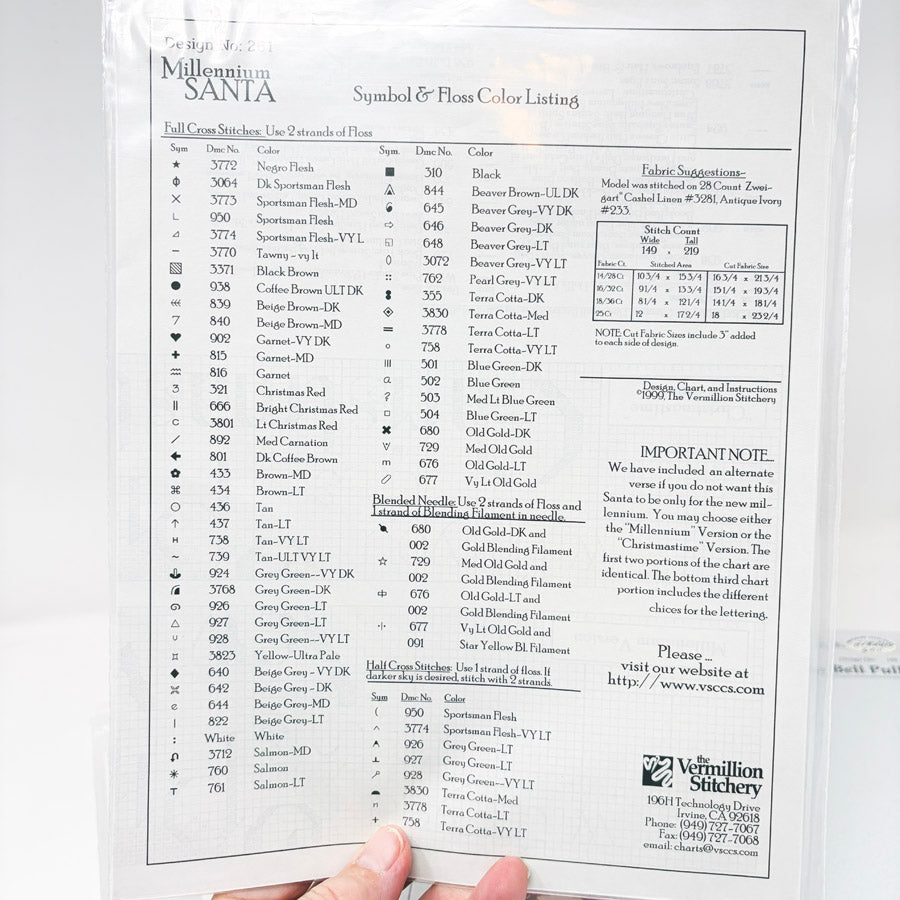 Design No: 261
Millennium
SANTA
Symbol & Floss Color Listing
Full Cross Stitches: Use 2 strands of Floss
Sym Dmc No. Color
★ 3772 Negro Flesh
3064 Dk Sportsman Flesh
3773 Sportsman Flesh-MD
950 Sportsman Flesh
3774 Sportsman Flesh-VY L
3770 Tawny - vy lt
3371 Black Brown
938 Coffee Brown ULT DK
839 Beige Brown-DK
7 840 Beige Brown-MD
902 Garnet-VY DK
815 Garnet-MD
816 Garnet
3 321 Christmas Red
666 Bright Christmas Red
C 3801 Lt Christmas Red
/ 892 Med Carnation
801 Dk Coffee Brown
433 Brown-MD
434 Brown-LT
436 Tan
437 Tan-LT
H 738 Tan-VY LT
~ 739 Tan-ULT VY LT
924 Grey Green--VY DK
3768 Grey Green-DK
926 Grey Green-LT
927 Grey Green-LT
928 Grey Green--VY LT
3823 Yellow-Ultra Pale
640 Beige Grey - VY DK
642 Beige Grey - DK
644 Beige Grey-MD
822 Beige Grey-LT
: White White
3712 Salmon-MD
760 Salmon
761 Salmon-LT
Sym. Dmc No. Color
310 Black
844 Beaver Brown-UL DK
645 Beaver Grey-VY DK
646 Beaver Grey-DK
648 Beaver Grey-LT
3072 Beaver Grey-VY LT
762 Pearl Grey-VY LT
355 Terra Cotta-DK
3830 Terra Cotta-Med
3778 Terra Cotta-LT
758 Terra Cotta-VY LT
501 Blue Green-DK
502 Blue Green
503 Med Lt Blue Green
504 Blue Green-LT
680 Old Gold-DK
729 Med Old Gold
m 676 Old Gold-LT
677 Vy Lt Old Gold
Blended Needle: Use 2 strands of Floss and
1 strand of Blending Filament in needle.
680 Old Gold-DK and
002 Gold Blending Filament
☆ 729 Med Old Gold and
002 Gold Blending Filament
676 Old Gold-LT and
002 Gold Blending Filament
677 Vy Lt Old Gold and
091 Star Yellow Bl. Filament
Half Cross Stitches: Use 1 strand of floss. If
darker sky is desired, stitch with 2 strands.
Sym Dmc No. Color
( 950 Sportsman Flesh
3774 Sportsman Flesh-VY LT
926 Grey Green-LT
927 Grey Green-LT
928 Grey Green--VY LT
3830 Terra Cotta-Med
n 3778 Terra Cotta-LT
+ 758 Terra Cotta-VY LT
Fabric Suggestions~
Model was stitched on 28 Count Zwei-
gart" Cashel Linen #3281, Antique Ivory
#233.
Stitch Count
Wide Tall
149 x 219
Fabric Ct. Stitched Area Cut Fabric Size
14/28 Ct 10 3/4 x 15 3/4 16 3/4 x 21 3/4
16/32 Ct 9 1/4 x 13 3/4 15 1/4 x 19 3/4
18/36 Ct 8 1/4 x 12 1/4 14 1/4 x 18 1/4
25 Ct 12 x 17 2/4 18 x 23 2/4
NOTE: Cut Fabric Sizes include 3" added
to each side of design.
Design, Chart, and Instructions
©1999, The Vermillion Stitchery
IMPORTANT NOTE...
We have included an alternate
verse if you do not want this
Santa to be only for the new mil-
lennium. You may choose either
the "Millennium" Version or the
"Christmastime" Version. The
first two portions of the chart are
identical. The bottom third chart
portion includes the different
chices for the lettering.
Please ...
visit our website at
http://www.vsccs.com
the
Vermillion
Stitchery
196H Technology Drive
Irvine, CA 92618
Phone: (949) 727-7067
Fax: (949) 727-7068
email: charts@vsccs.com
Bell Pull